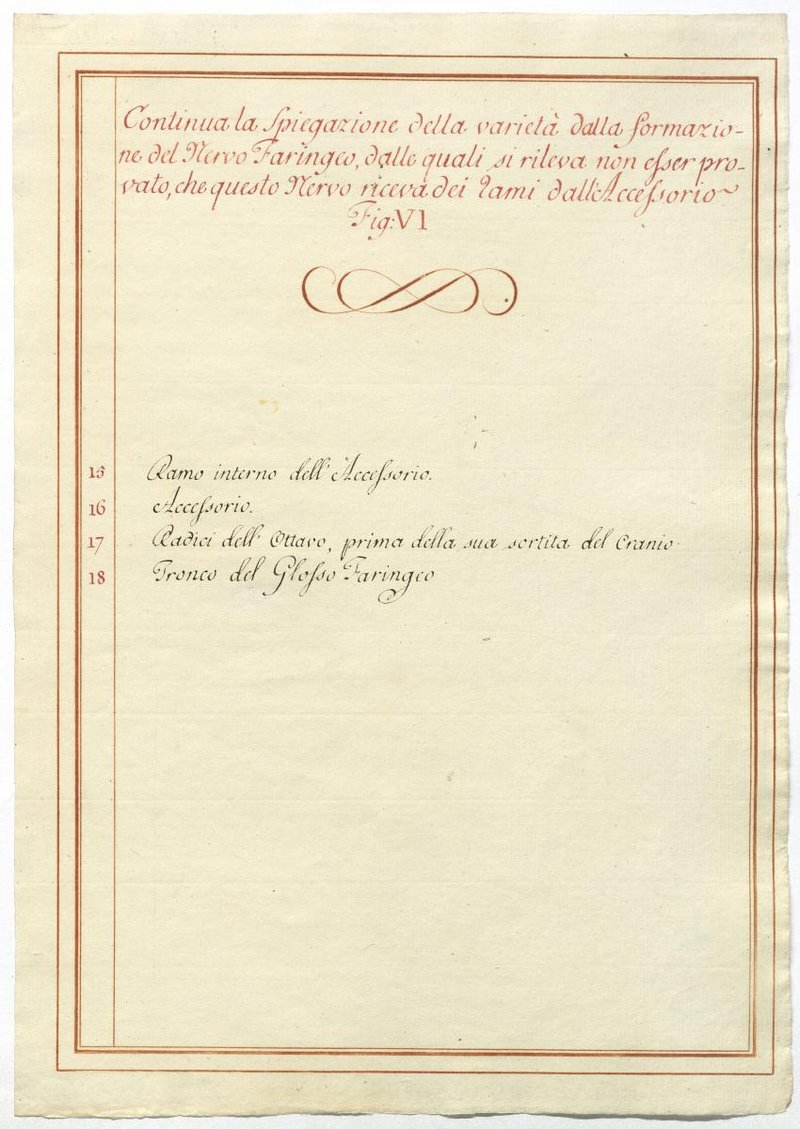 Continua la Spiegazione della varietà dalla formazio-
ne del Nervo Faringeo, dalle quali si rileva non esser pro-
vato, che questo Nervo riceva dei rami dall'Accessorio
Fig: VI
15 Ramo interno dell'Accessorio.
16 Accessorio.
17 Radici dell'Ottavo, prima della sua sortita del Cranio
18 Tronco del Glosso Faringeo